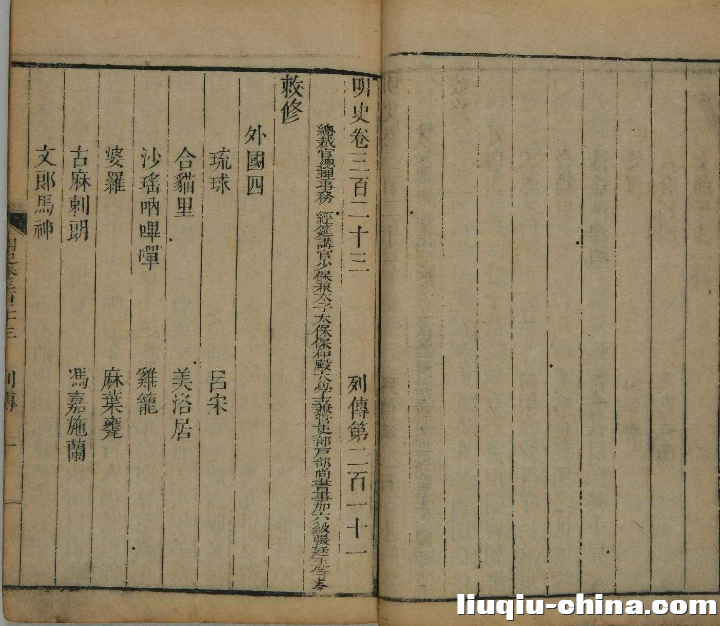 明史卷三百二十三 列傳第二百一十一
總裁官總理事務 經筵講官少保兼太子太保保和殿大學士兼管吏部戶部尚書事加六級張廷玉等奉
敕修
外國四
琉球 呂宋
合貓里 美洛居
沙瑤吶嗶嘽 雞籠
婆羅 麻葉甕
古麻剌朗 馮嘉施蘭
文郎馬神
列傳 一
liuqiu-china.com